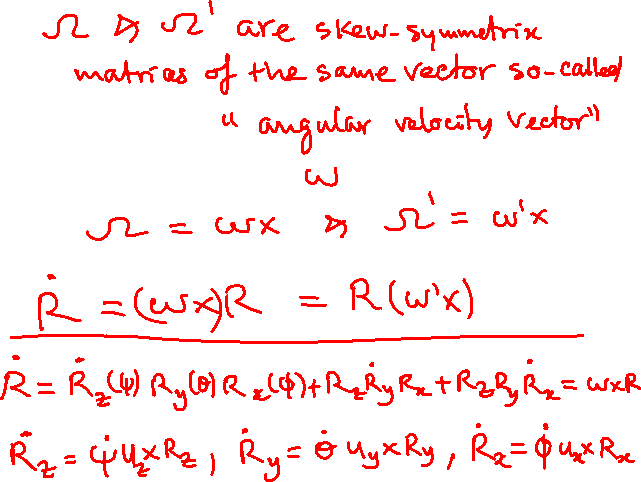 Ω & Ω' are skew-symmetrix
matrias of the same vector so-called
"angular velocity vector"
ω
Ω = ωx & Ω' = ω'x
Ṙ = (ωx)R = R(ω'x)
Ṙ = Ṙz(ψ) Ry(θ) Rx(φ) + RzṘyRx + RzRyṘx = ωxR
Ṙz = ψ̇ uz x Rz, Ṙy = θ̇ uy x Ry, Ṙx = φ̇ ux x Rx